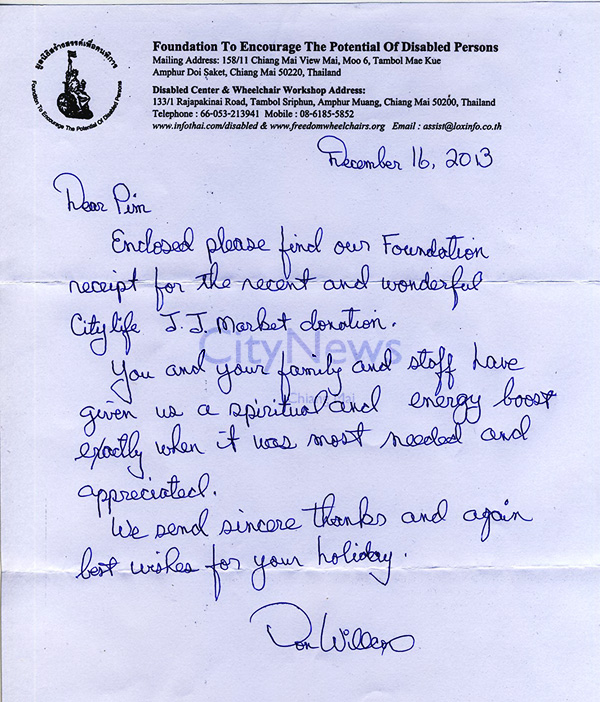 มูลนิธิสร้างสรรค์เพื่อคนพิการ
Foundation To Encourage The Potential Of Disabled Persons
Foundation To Encourage The Potential Of Disabled Persons
Mailing Address: 158/11 Chiang Mai View Mai, Moo 6, Tambol Mae Kue
Amphur Doi Saket, Chiang Mai 50220, Thailand
Disabled Center & Wheelchair Workshop Address:
133/1 Rajapakinai Road, Tambol Sriphun, Amphur Muang, Chiang Mai 50200, Thailand
Telephone : 66-053-213941 Mobile : 08-6185-5852
www.infothai.com/disabled & www.freedomwheelchairs.org Email : assist@loxinfo.co.th
December 16, 2013
Dear Pim
Enclosed please find our Foundation
receipt for the recent and wonderful
Citylife J.J. Market donation.
CityNews
You and your family and staff have
Chiang Mai
given us a spiritual and energy boost
exactly when it was most needed and
appreciated.
We send sincere thanks and again
best wishes for your holiday.
Don Willcox